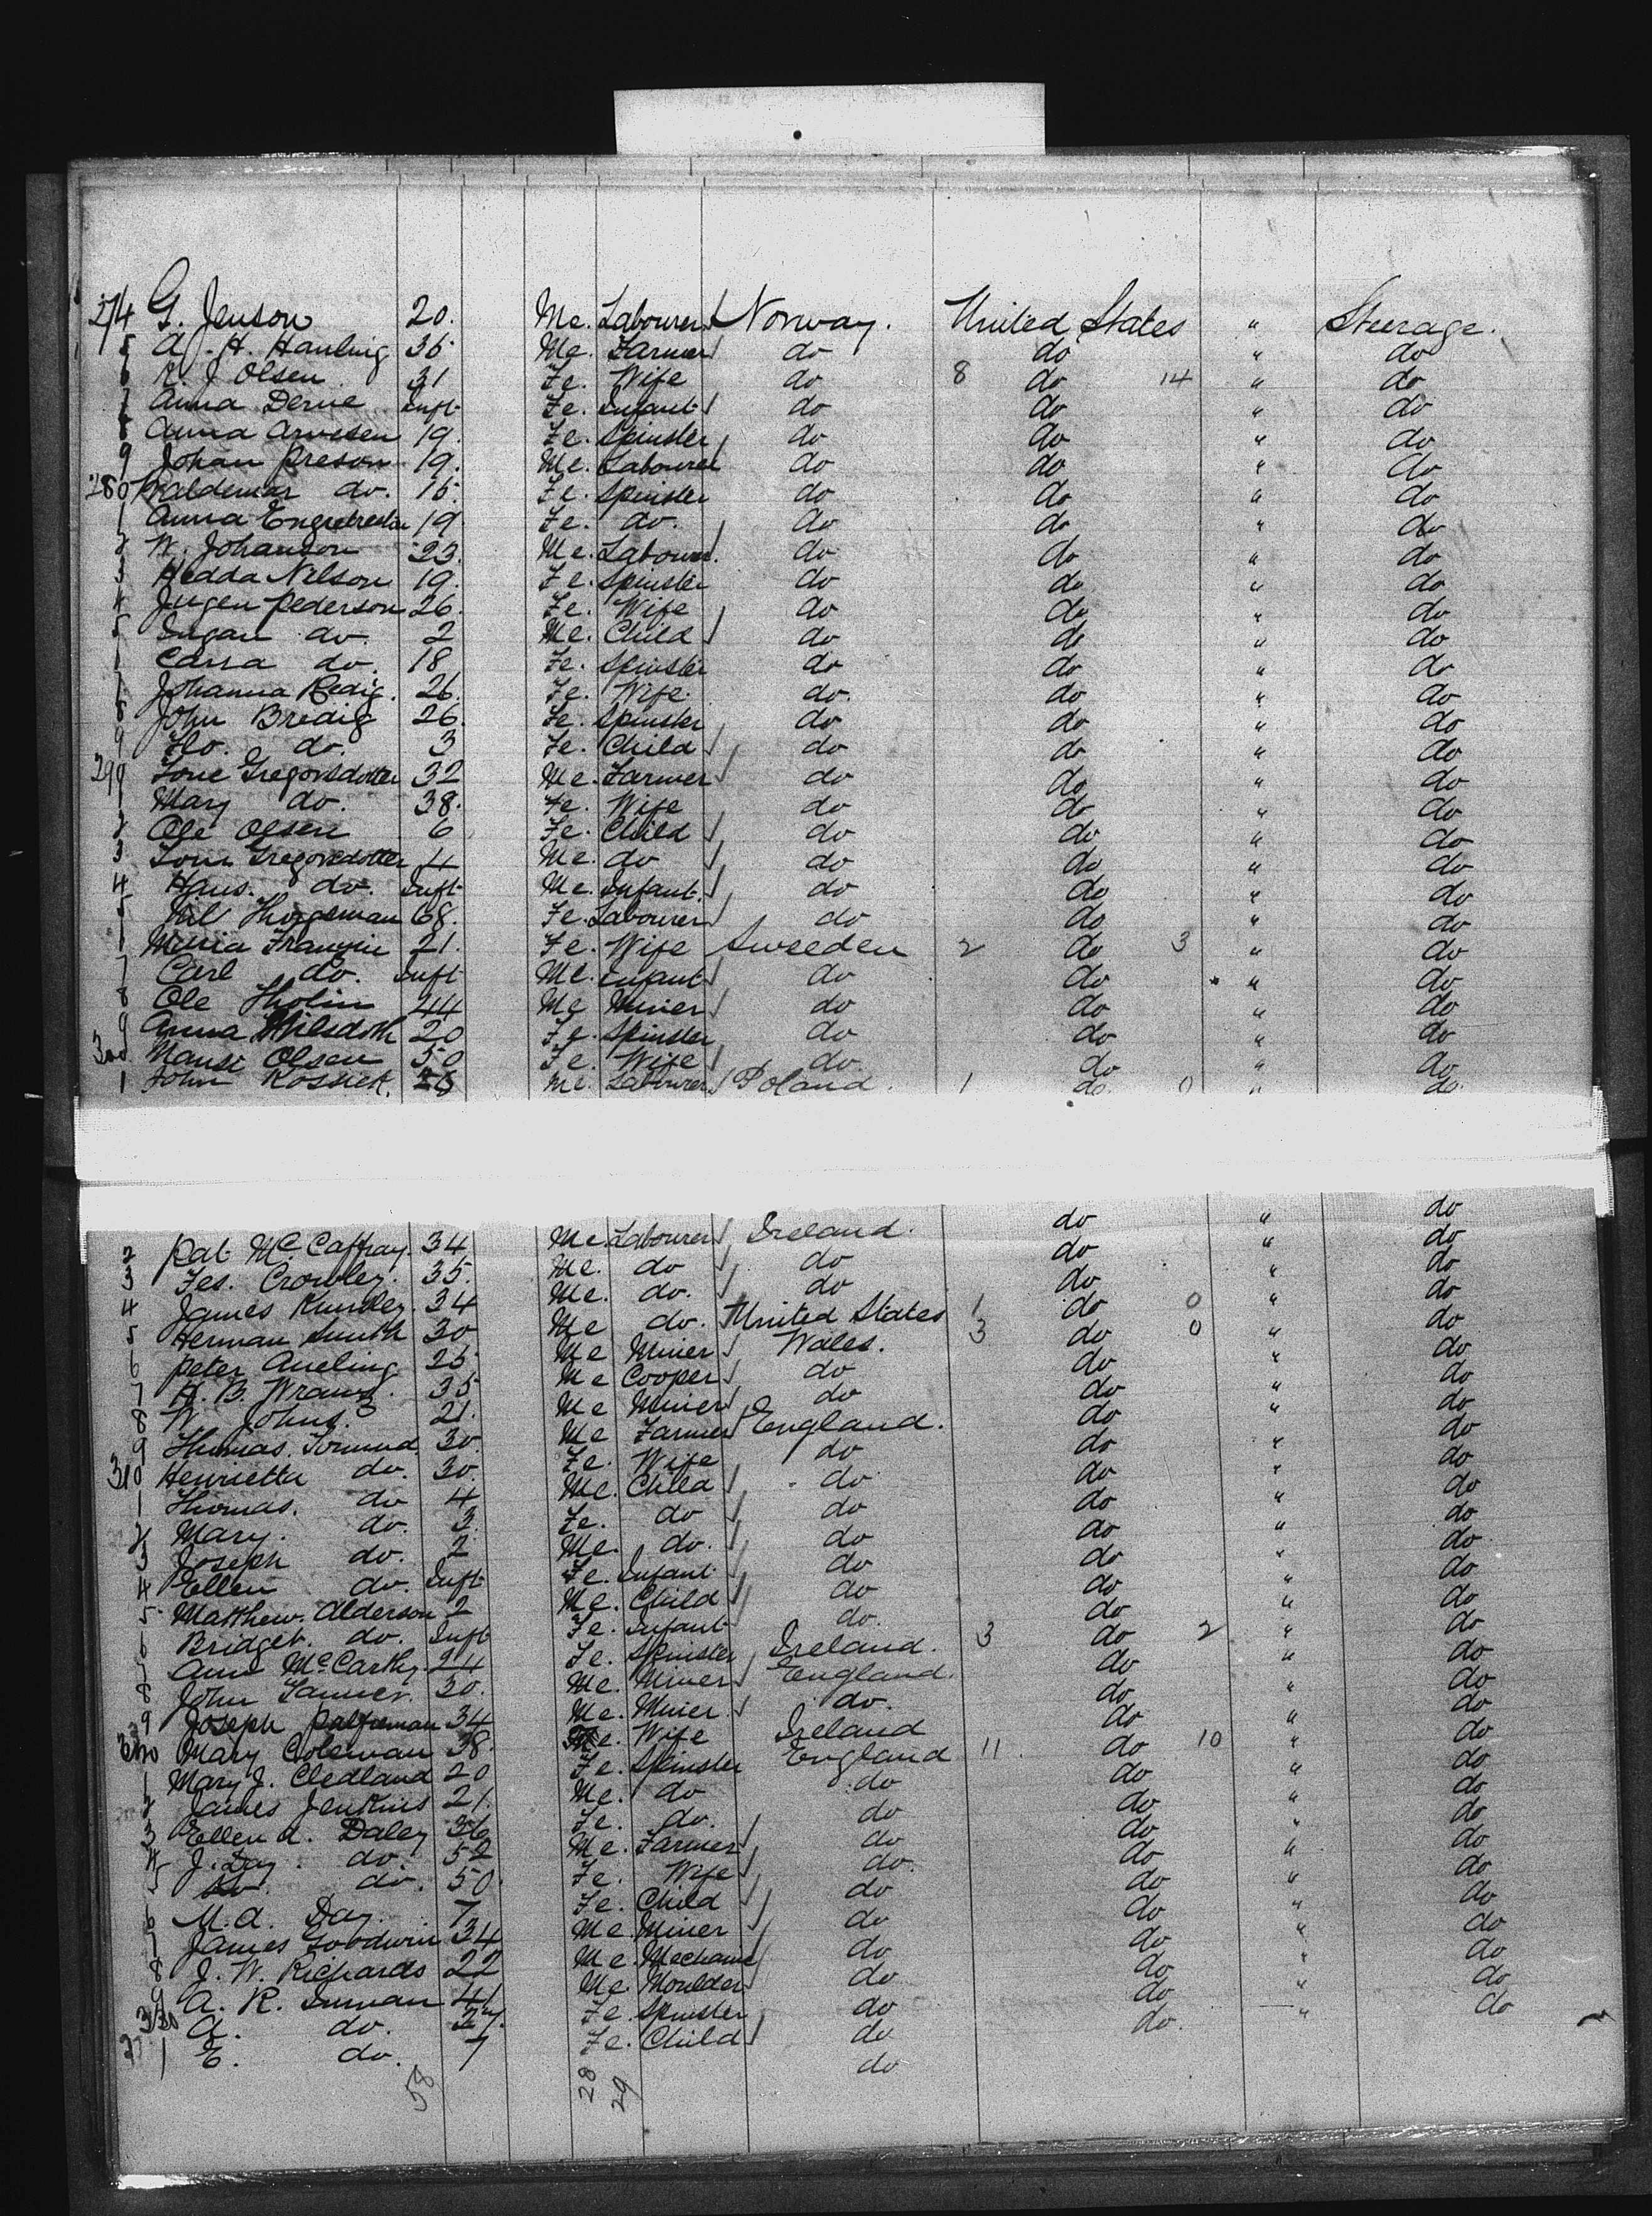 274 G. Jenson 20. Me. Labourer Norway. United States " Steerage.
5 A. H. Hanling 35 Me. Farmer do do " do
6 R. J Olsen. 31 Fe. Wife do 8 do 14 " do
7 Anna Derne Inft Fe. Infant do do " do
8 Anna Arvesen 19. Fe. Spinster do do " do
9 Johan Preson 19. Me. Labourer do do " do
280 Waldemar do. 15. Fe. Spinster do do " do
1 Anna 19. Fe. do. do do " do
2 W. Johanson 23. Me. Labourer. do do " do
3 Hedda Nilson 19. Fe. Spinster do do " do
4 Jugen Pederson 26. Fe. Wife do do " do
5 Ingan do. 2 Me. Child do do " do
Carra do. 18 Fe. Spinster do do " do
7 Johanna Redig. 26. Fe. Wife. do. do " do
8 John Bredig 26. Fe. Spinster do do " do
9 Flo. do. 3 Fe. Child do do " do
290 Tone Gregorsdotter 32 Me. Farmer do do " do
1 Mary do. 38. Fe. Wife do do " do
2 Ole Olsen 6 Fe. Child do do " do
3 Gregorsdotter 4 Me. do do do " do
4 Hans. do. Inft Me. Infant. do do " do
5 68. Fe. Labourer do do " do
Maria 21. Fe. Wife Sweeden 2 do 3 " do
7 Carl do. Inft Me. Infant do do " do
8 Ole Tholin 44 Me Miner do do " do
9 Anna 20 Fe. Spinster do do " do
300 Olsen 50 Fe. Wife do. do " do
1 John Rossick. Me. Labourer Poland. 1 do. 0 " do.
2 Pat Mc Caffray. 34 Me. Labourer Ireland. do " do
3 Jes. Crowley. 35. Me. do do do " do
4 James 34 Me. do. do do " do
5 Herman Smith 30 Me do. United States 1 do 0 " do
6 Peter Aneling 25 Me Miner Wales. 3 do 0 " do
7 H. B. 35 Me Cooper do do " do
8 W. Johns. 21. Me Miner do do " do
9 Thomas. 30. Me Farmer England. do " do
310 Henrietta do. 30. Fe. Wife do do " do
1 Thomas. do 4 Me. Child do do " do
2 Mary. do. 3. Fe. do do do " do
3 Joseph do. 2 Me. do. do do " do
4 Ellen do. Inft Fe. Infant do do " do
5 Matthew. Alderson 2 Me. Child do do " do
6 Bridget. do. Inft Fe. Infant do. do " do
Ann McCarthy 24 Fe. Spinster Ireland. 3 do 2 " do
8 John Tanner. 30. Me. Miner England. do " do
9 Joseph Palfreman 34 Me. Miner. do. do " do
320 Mary Coleman 38. Fe. Wife Ireland do " do
1 Mary J. Cledland 20 Fe. Spinster England 11. do 10 " do
2 James Jenkins 21. Me. do do do " do
3 Ellen A. Daley 36 Fe. do. do do " do
4 J. Day. do. 52 Me. Farmer do do " do
5 do. do. 50. Fe. Wife do. do " do
6 M. A. Day. 7 Fe. Child do do " do
7 James Goodwin 34 Me. Miner do do " do
8 J. W. Richards 22 Me. Mechanic do do " do
9 A. R. Inman 41 Me. Moulder do do " do
330 A. do. 37. Fe. Spinster do do " do
1 E. do. 7 Fe. Child do do. " do
do
58 28 29